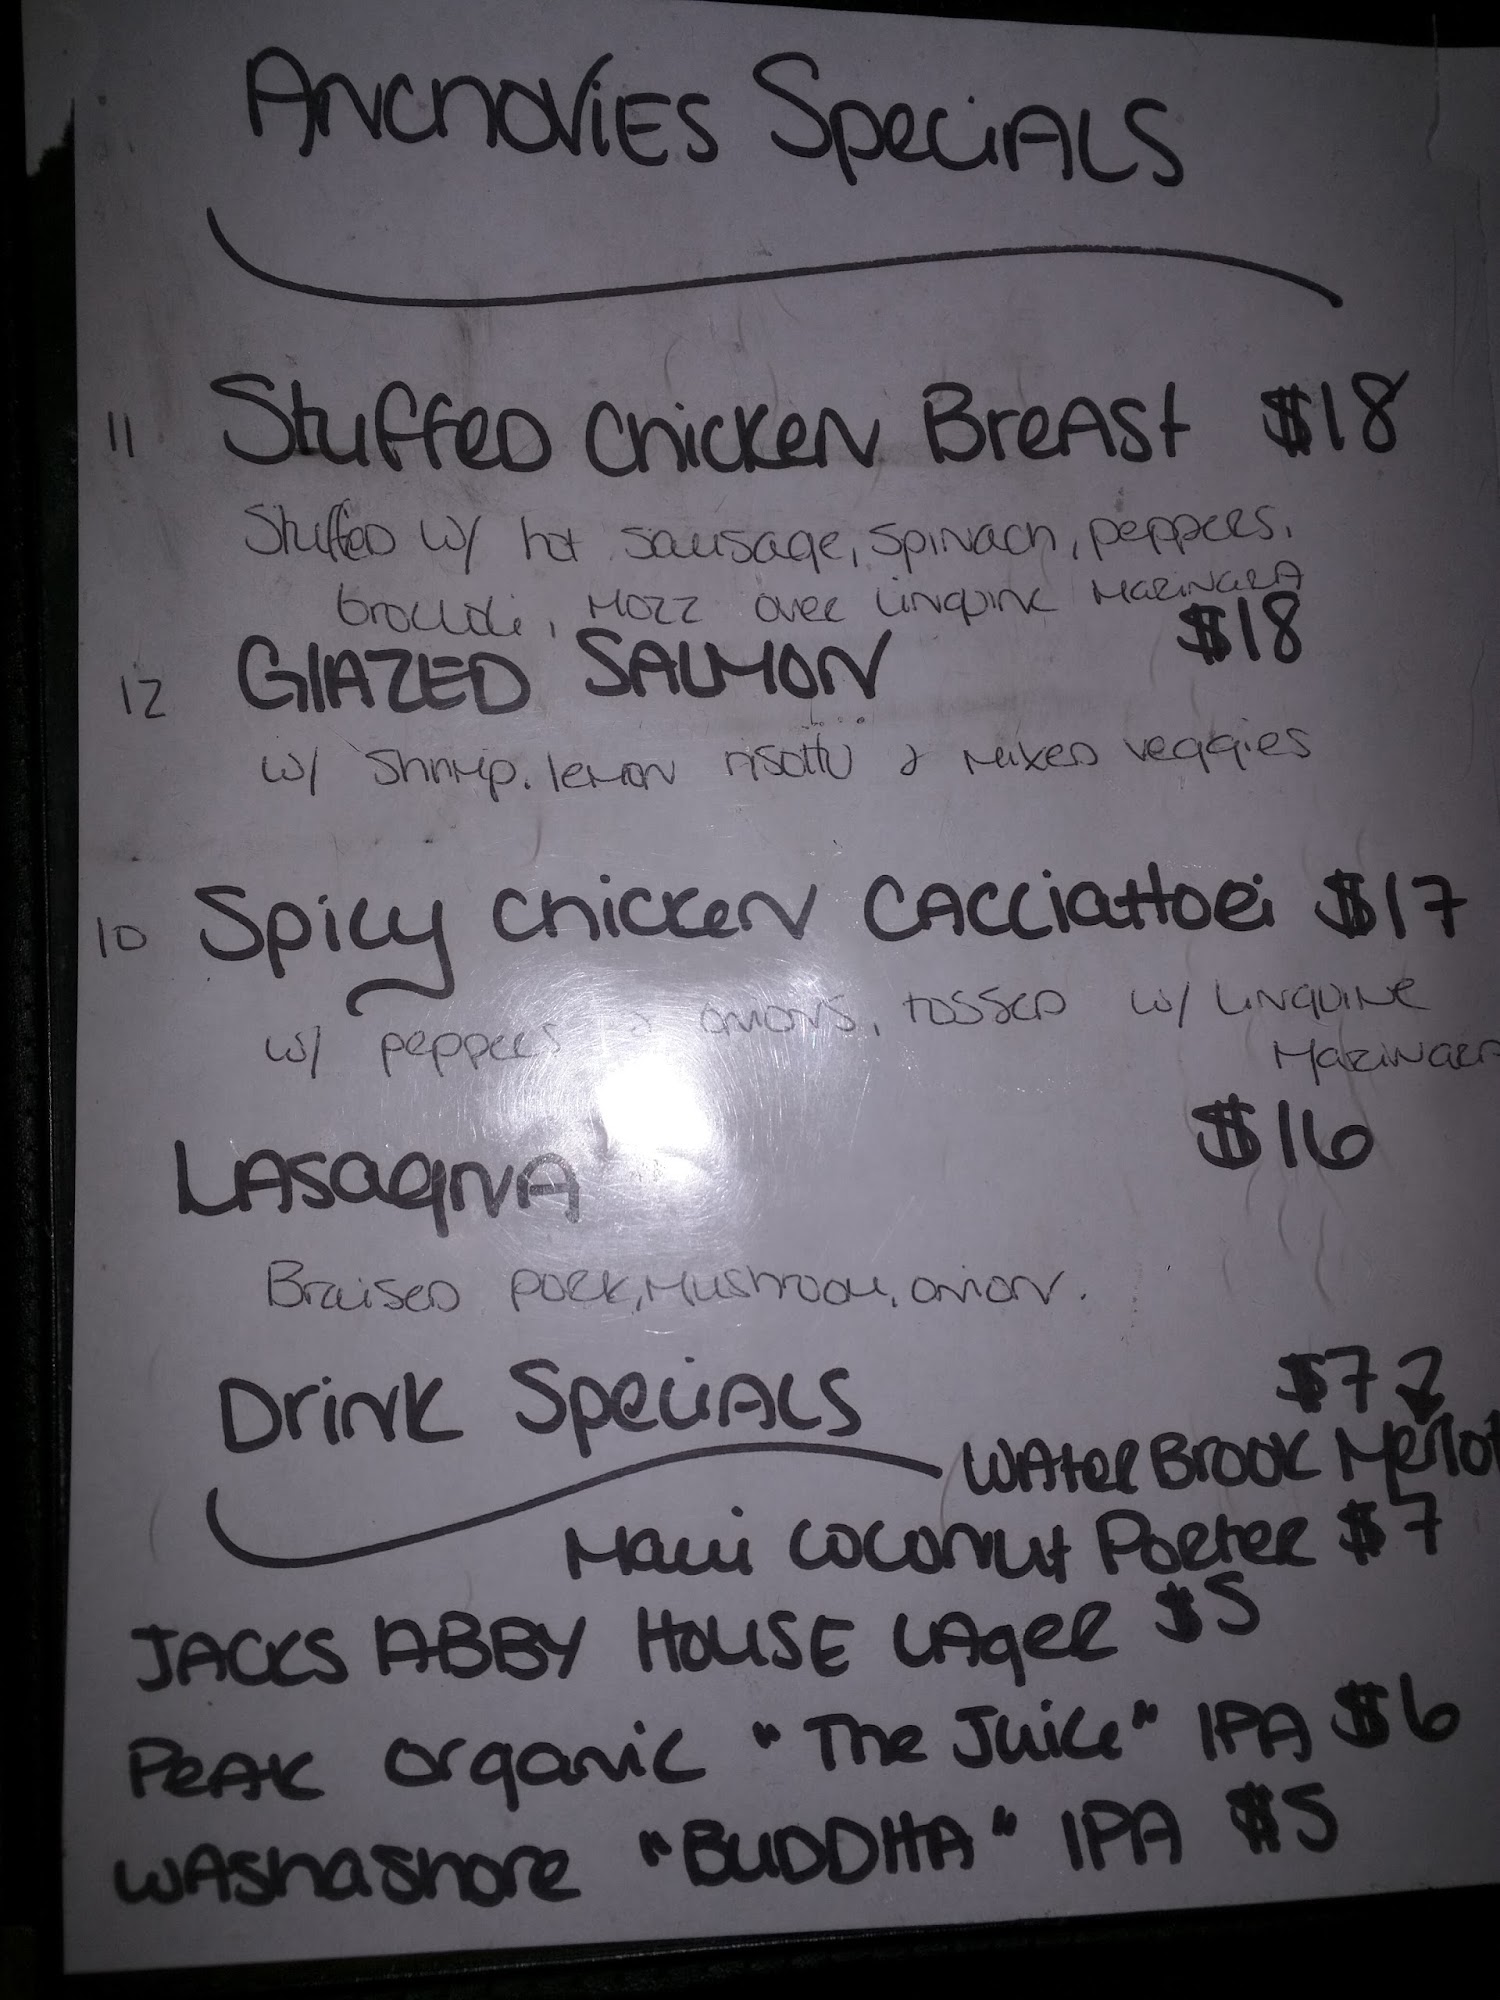 ANCHOVIES SPECIALS
11 Stuffed Chicken Breast $18
Stuffed w/ hot sausage, spinach, peppers,
broccoli, mozz over linquine marinara
12 GlAZED SALMON $18
w/ shrimp. lemon risotto & mixed veggies
10 Spicy Chicken Cacciattori $17
w/ peppers & onions, tossed w/ linquine
marinara
LASAGNA $16
Braised pork, mushroom, onion.
Drink Specials $7
WaterBrook Merlot
Maui Coconut Porter $7
JACKS ABBY HOUSE LAger $5
Peak Organic "The Juice" IPA $6
Washashore "BUDDHA" IPA $5